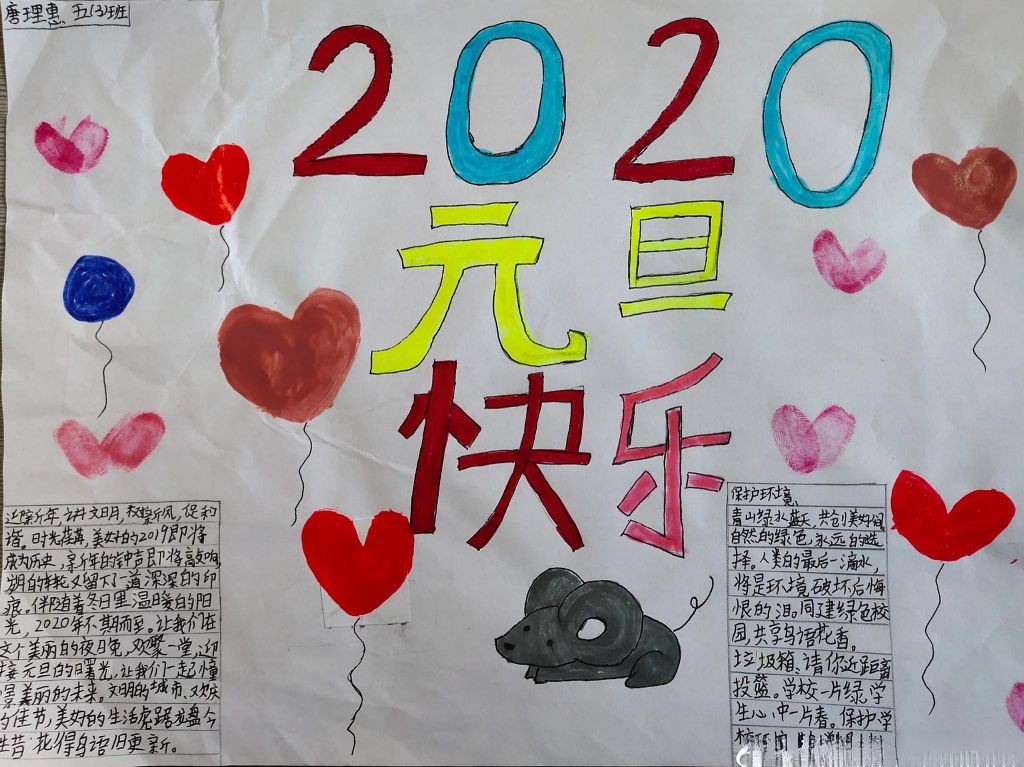 唐理惠 五(3)班
2020
元旦
快乐
迎新年,讲文明,树新风,促和
谐。时光荏苒,美好的2019即将
成为历史,新年的钟声即将高奏响,
的轮又留下一道深深的印
痕。伴随着冬日里温暖的阳
光,2020年不期而至。让我们在
这个美丽的夜晚,欢聚一堂,迎
接元旦的曙光,让我们一起憧
景美丽的未来。文明的城市、欢庆
的佳节,美好的生活虎踞龙盘今
胜昔花得鸟语旧更新。
保护环境
青山绿水蓝天,共创美好
自然的绿色,永远的选
择。人类的最后一滴水,
将是环境破坏后悔
恨的泪。同建绿色校
园,共享鸟语花香。
垃圾箱,请你近距离
投篮。学校一片绿,学
生心中一片春。保护学